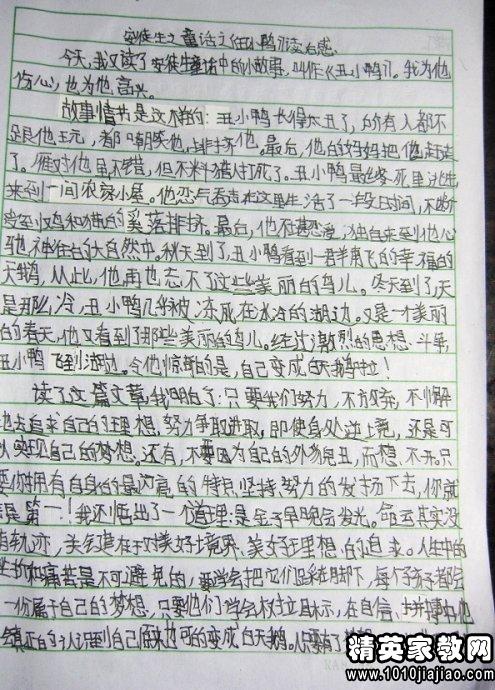 安徒生之童话之《丑小鸭》读后感.
今天,我又读了安徒生童话中的小故事,叫作《丑小鸭》。我为他
伤心,也为他高兴。
故事情节是这样的:丑小鸭长得太丑了,所有人都不
跟他玩,都嘲笑他,排挤他。最后,他的妈妈把他赶走
了。雁对他虽不错,但不料猎人打死了。丑小鸭最终死里逃生
来到一间农家小屋。他忍气吞声在这里生活了一段日子,不断
受到小鸡和猫的奚落排挤。最后,他不堪忍受,独自来到他心
驰神往的大自然中。秋天到了,丑小鸭看到一群展飞的幸福的
天鹅,从此,他再也忘不了这些美丽的鸟儿。冬天到了,天
是那么冷,丑小鸭几乎被冻死在冰冷的湖边。又是一个美丽
的春天,他又看到了那些美丽的鸟儿。经过激烈的思想斗争,
丑小鸭飞到湖边。令他惊讶的是,自己变成白天鹅啦!
读了这篇文章,我明白了:只要我们努力,不放弃,不懈
地去追求自己的理想,努力争取进取,即使身处逆境,还是可
以实现自己的梦想。还有,不要因为自己的外貌丑,而想不开,只
要你拥有自身的最闪亮的特点,坚持,努力的发扬下去,你就
是第一!我还悟出了一个道理:是金子早晚会发光。命运其实没
有轨迹,关键在于对美好境界、美好理想的追求。人生中的
挫折和痛苦是不可避免的,要学会把它们踩在脚下,每个孩子都会
一份属于自己的梦想,只要他们学会树立目标,在自信、拼搏中他
镇正的认识到自己原来也可以变成白天鹅。只要有了
精英家教网
www.1010jiajiao.com